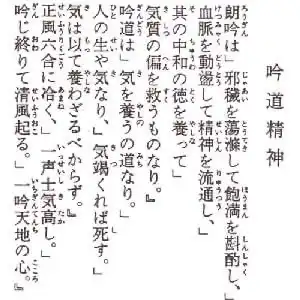 吟道精神
朗吟は」邪穢を蕩滌して飽満を斟酌し、」
血脈を動盪して精神を流通し、」
其の中和の徳を養って」
気質の偏を救うものなり。』
吟道は」気を養うの道なり。」
人の生や気なり、」気竭くれば死す。」
気は以て養わざるべからず。』
正風六合に洽く、」一声士気高し。」
吟じ終りて清風起る。」一吟天地の心。』